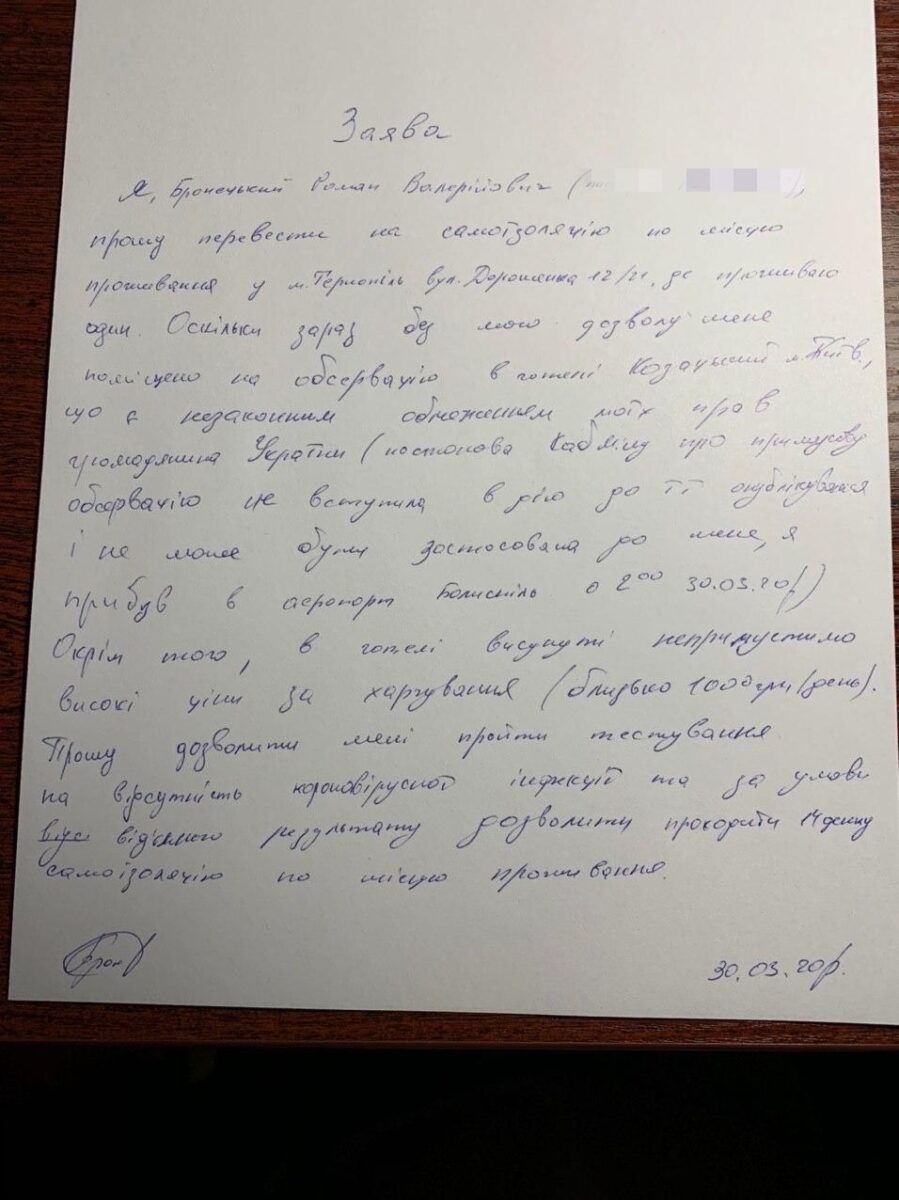 Заява
Я, Бронецький Роман Валерійович (
прошу перевести на самоізоляцію по місцю
проживання у м.Тернопіль вул. Дорошенка 12/21, де проживаю
один. Оскільки зараз без мого дозволу мене
поміщено на обсервацію в готелі Козацький м.Київ.,
що є незаконним обмеженням моїх прав
громадянина України (постанова Кабміну про примусову
обсервацію не вступила в дію до її опублікування
і не може бути застосована до мене, я
прибув в аеропорт Бориспіль о 2⁰⁰ 30.03.20р)
Окрім того, в готелі висунуті неприпустимо
високі ціни за харчування (близько 1000 грн/день).
Прошу дозволити мені пройти тестування
на відсутність короновірусної інфекції та за умови
від'ємного результату дозволити проходити 14 денну
самоізоляцію по місцю проживання.
30.03.20р.